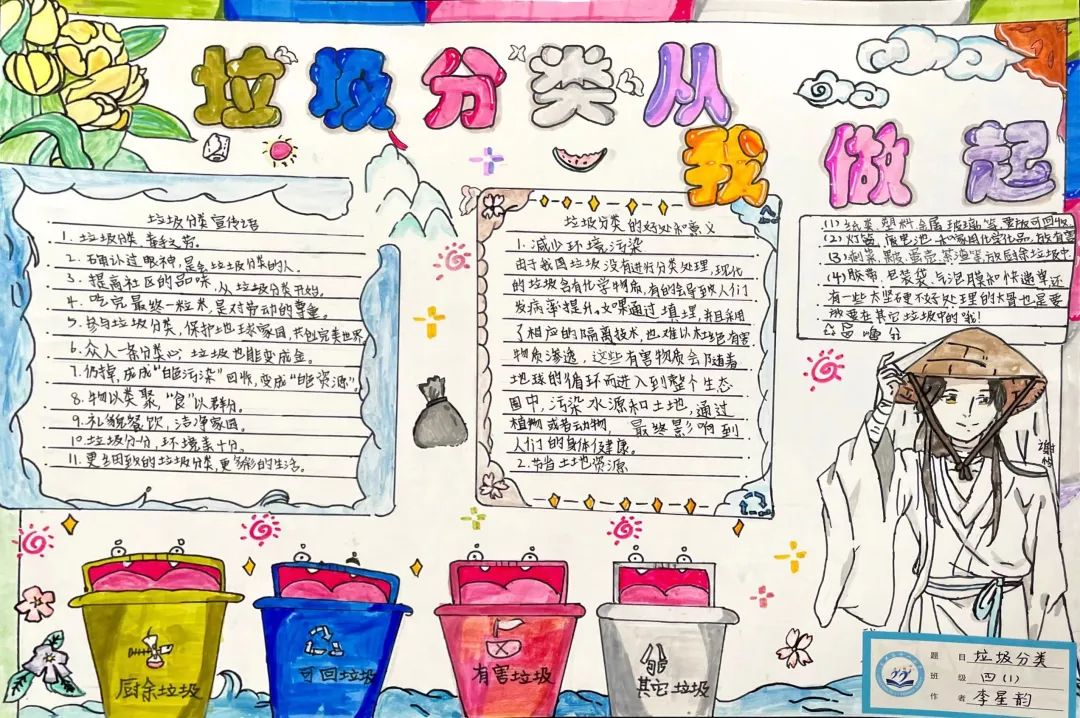 垃圾分类从
我做起
垃圾分类宣传语
1. 垃圾分类 举手之劳。
2. 确认过眼神,是会垃圾分类的人。
3. 提高社区的品味,从垃圾分类开始。
4. 吃完最终一粒米,是对劳动的尊重。
5. 参与垃圾分类,保护地球家园,共创完美世界
6. 众人一条分类心,垃圾也能变成金。
7. 扔掉,成成“自然污染”回收,变成“自然资源”。
8. 物以类聚,“食”以群分。
9. 礼貌餐饮,洁净家园。
10. 垃圾分分,环境美十分。
11. 更细致的垃圾分类,更多彩的生活。
垃圾分类的好处和意义
1. 减少环境污染
由于我国垃圾没有进行分类处理,现代
的垃圾含有化学物质,有的会导致人们
发病率提升。如果通过填埋,并且采用
了相应的隔离技术,也难以杜绝有害
物质渗透,这些有害物质会随着
地球的循环而进入到整个生态
圈中,污染水源和土地,通过
植物或者动物,最终影响到
人们的身体健康。
2. 节省土地资源
(1) 纸类、塑料、金属、玻璃等,要放可回收
(4) 胶带、包装袋、气泡膜和快递单,还
有一些太坚硬不好处理的大骨也是要
放要在其它垃圾中的哦!
厨余垃圾
可回垃圾
有害垃圾
其它垃圾
题目 垃圾分类
班级 四(1)
作者 李星韵